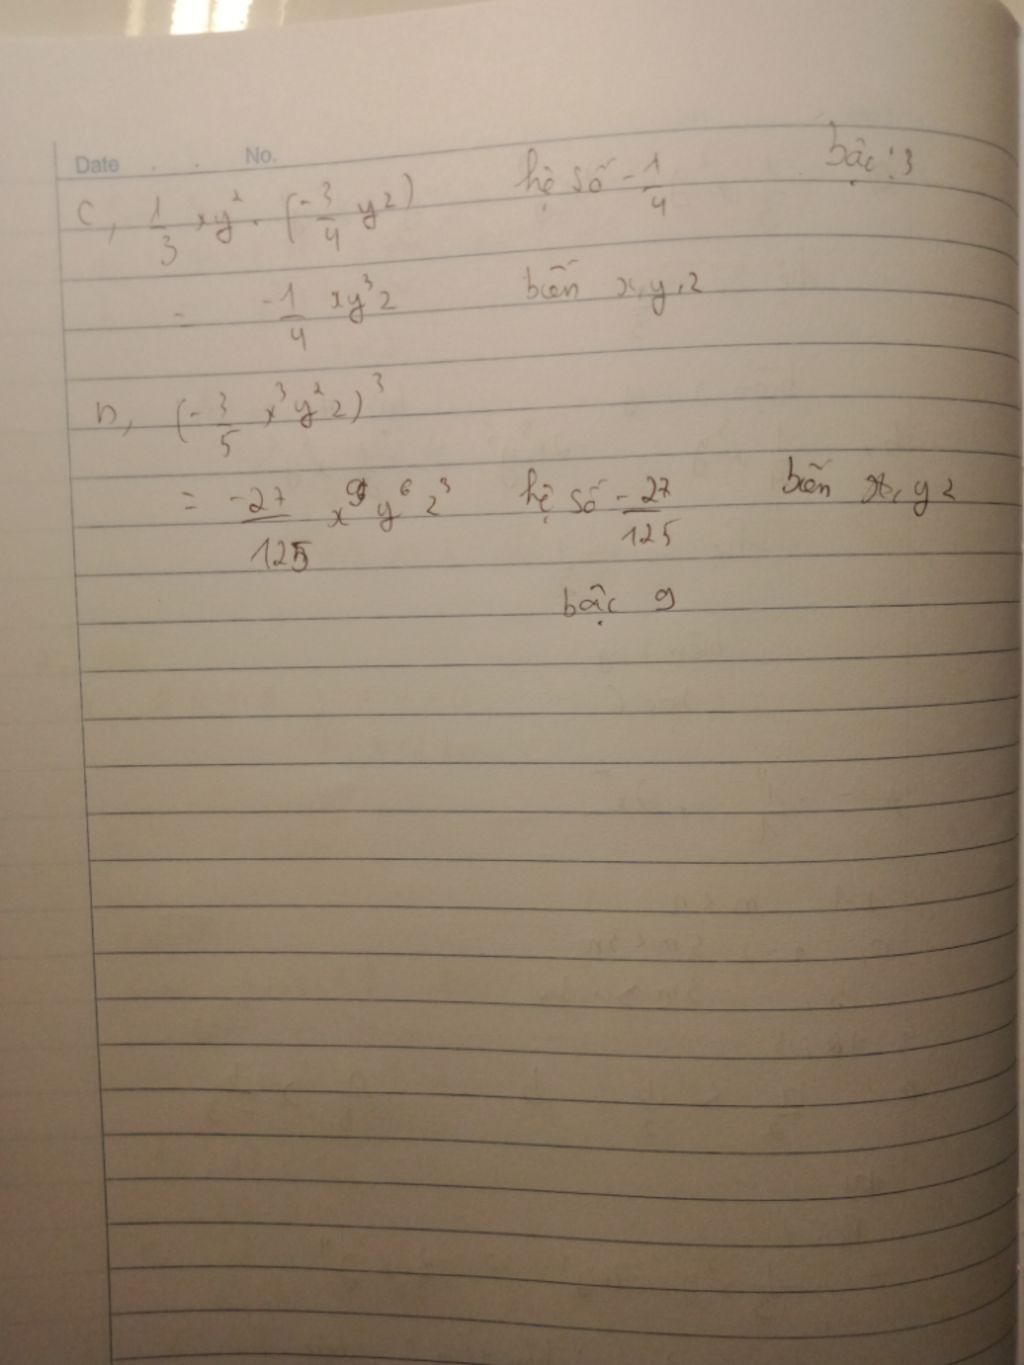 Date . . No.
C, 1/3 xy² . (-3/4 yz) hệ số -1/4 bậc: 3
= -1/4 xy³z biến x, y, z
D, (-3/5 x³y²z)³
= -27/125 x⁹y⁶z³ hệ số -27/125 biến x, y z
bậc 9